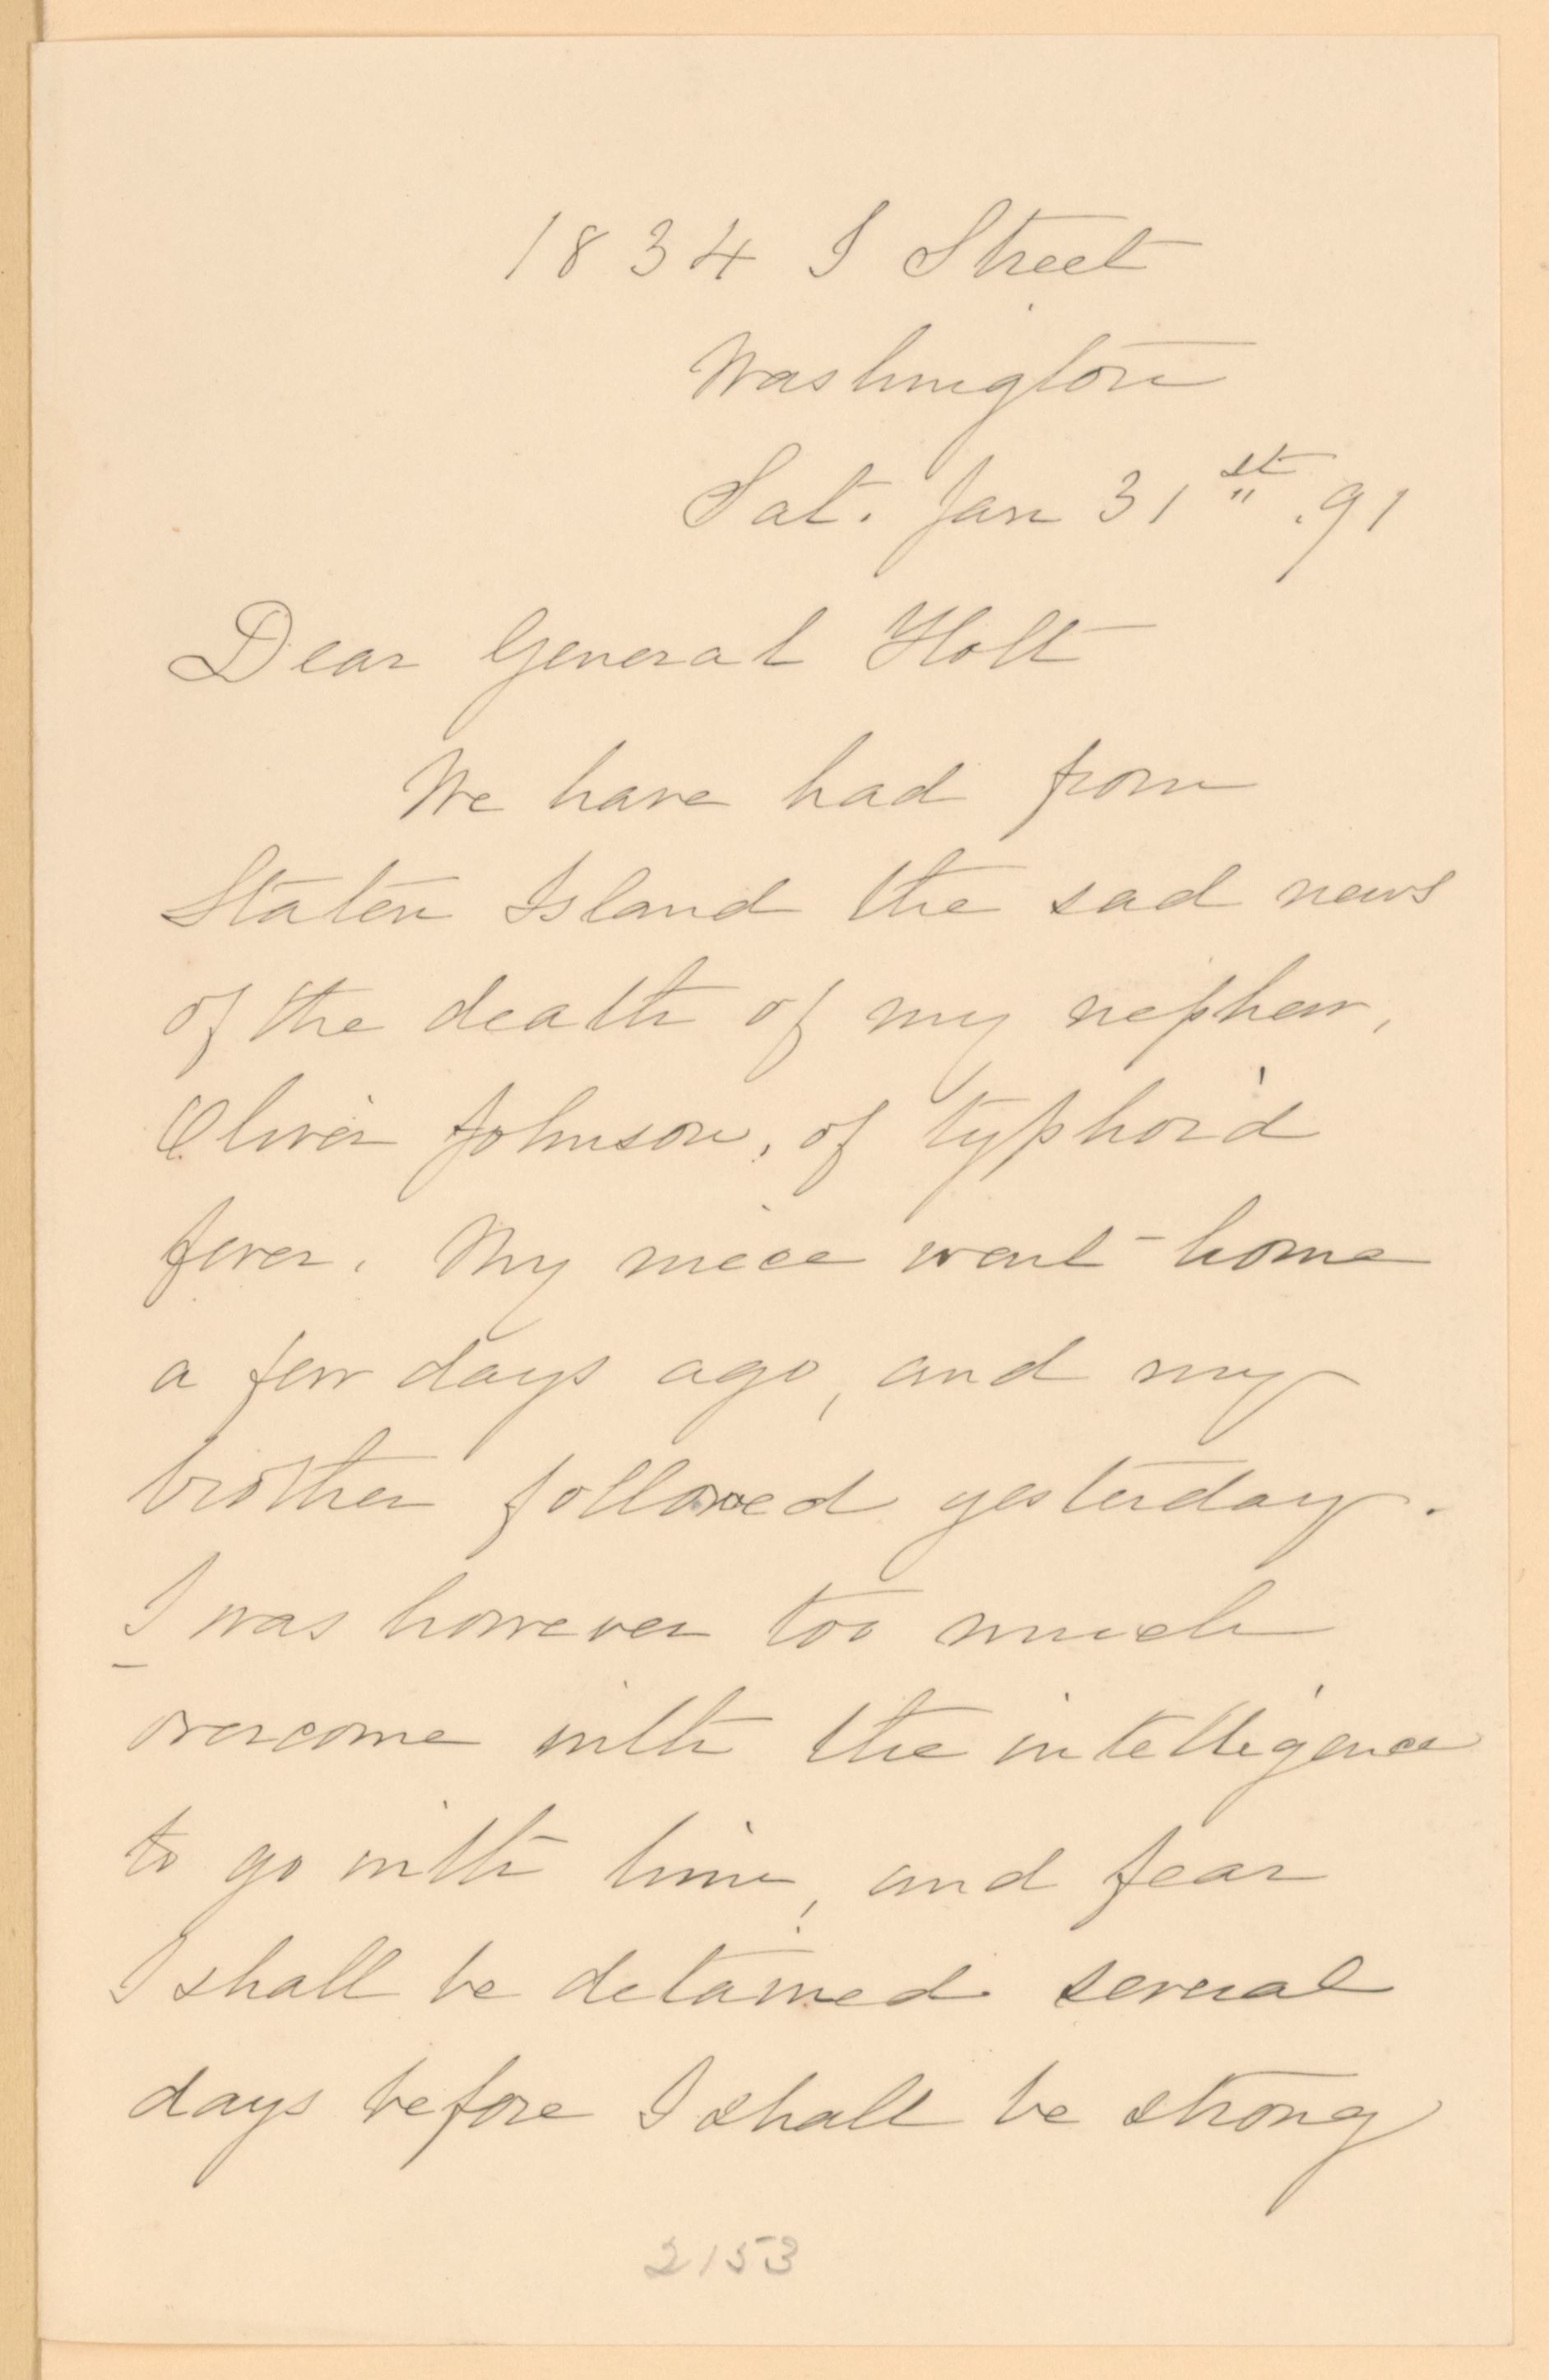 1834 I Street
Washington
Sat. Jan 31st .91
Dear General Holt
We have had from
Staten Island the sad news
of the death of my nephew,
Oliver Johnson, of typhoid
fever. My niece went home
a few days ago, and my
brother followed yesterday.
I was however too much
overcome with the intelligence
to go with him, and fear
I shall be detained several
days before I shall be strong
2153